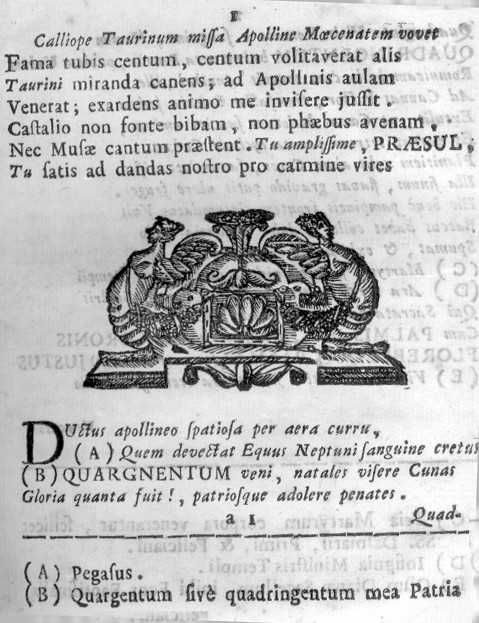 I
Calliope Taurinum missâ Apolline Mœcenatem vovet
Fama tubis centum, centum volitaverat alis
Taurini miranda canens; ad Apollinis aulam
Venerat; exardens animo me invisere jussit.
Castalio non fonte bibam, non phæbus avenam,
Nec Musæ cantum præstent. Tu amplissime, PRÆSUL,
Tu satis ad dandas nostro pro carmine vires
DUctus apollineo spatiosa per aera curru,
(A) Quem devectat Equus Neptuni sanguine cretus
(B) QUARGNENTUM veni, natales visere Cunas
Gloria quanta fuit!, patriosque adolere penates.
a 1 Quad-
(A) Pegasus.
(B) Quargentum sivè quadringentum mea Patria